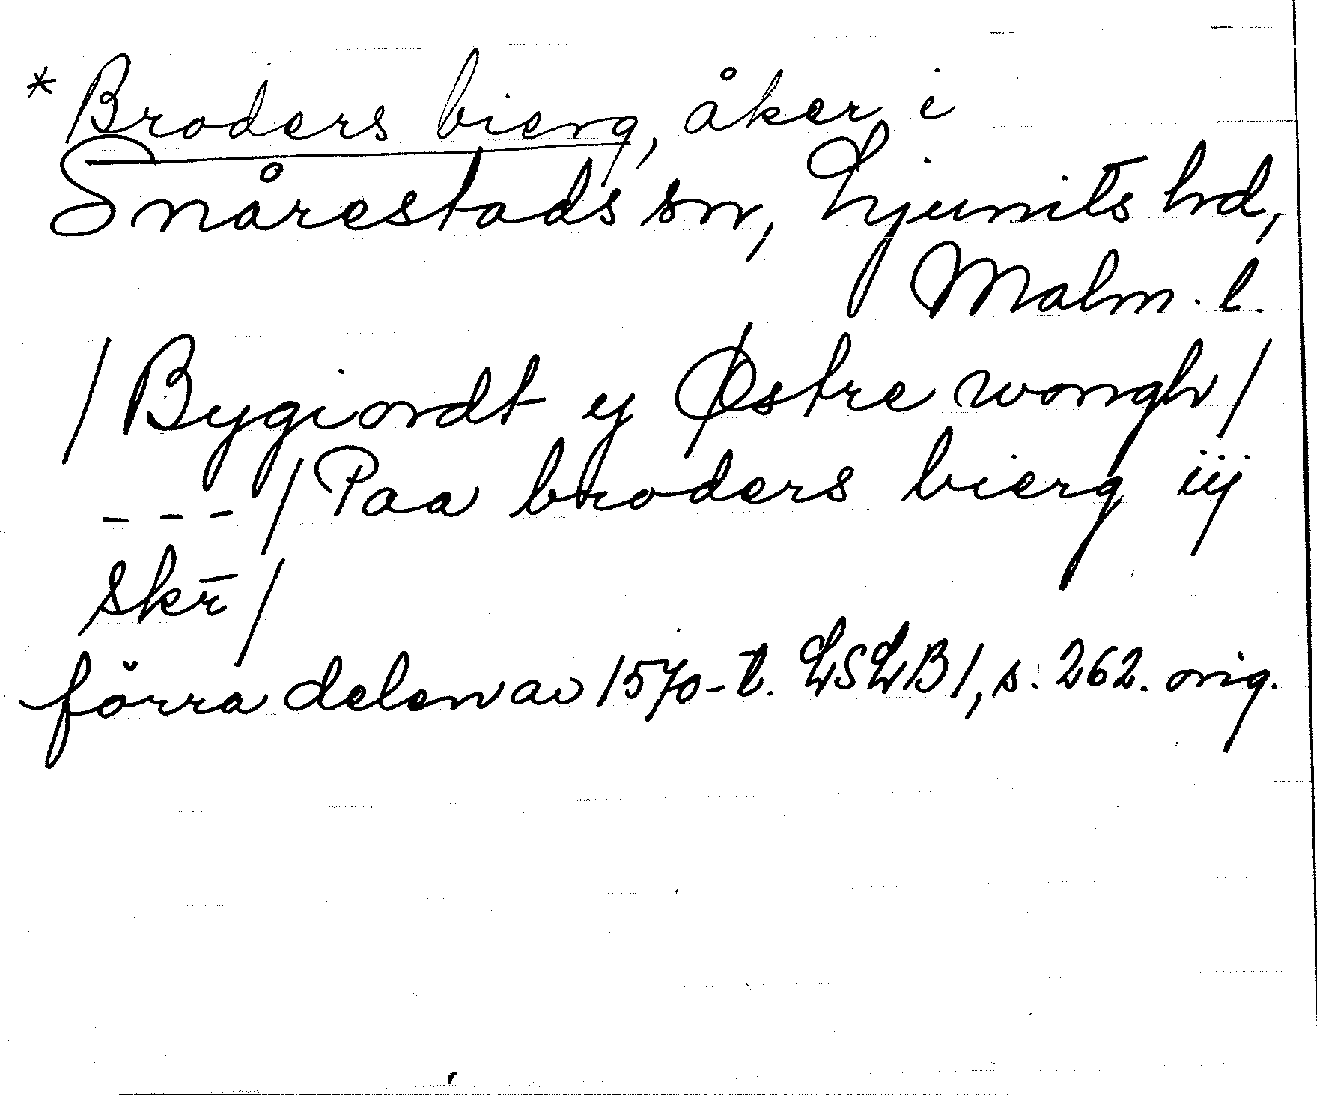 * Broders bierg, åker i
Snårestads sn, Ljunits hd,
Malm. l.
/ Bygiordt ij Østre wongh /
--- / Paa broders bierg iij
skr̄ /
förra delen av 1570-t. LSLB 1, s. 262. orig.